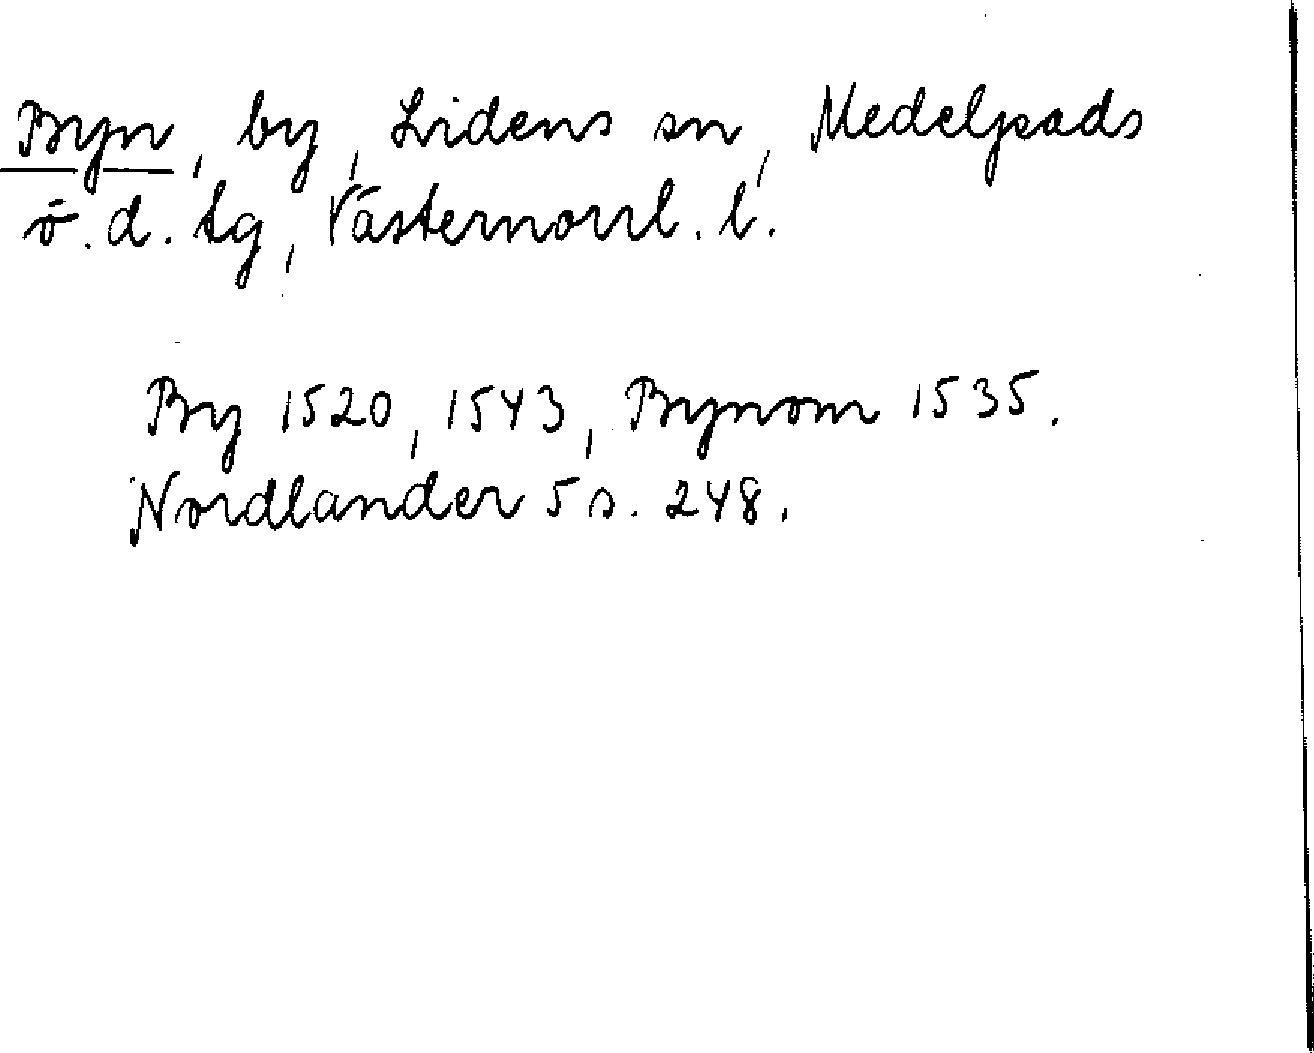 Byn, by, Lidens sn, Medelpads
ö.d. tg, Västernorrl. l.
By 1520, 1543, Bynom 1535.
Nordlander 5 s. 248.